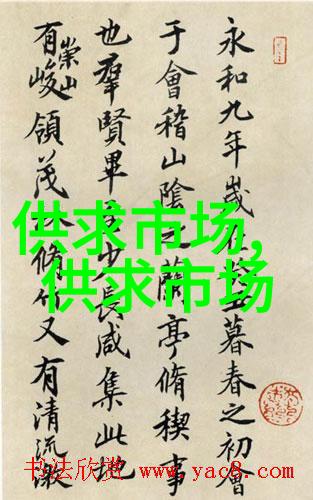 永和九年歲在暮春之初會
于會稽山陰之蘭亭脩稧事
也羣賢畢至少長咸集此地
有崇山峻領茂脩竹又有清流激
供求市场,
供求市场
书法欣赏 www.yac8.com